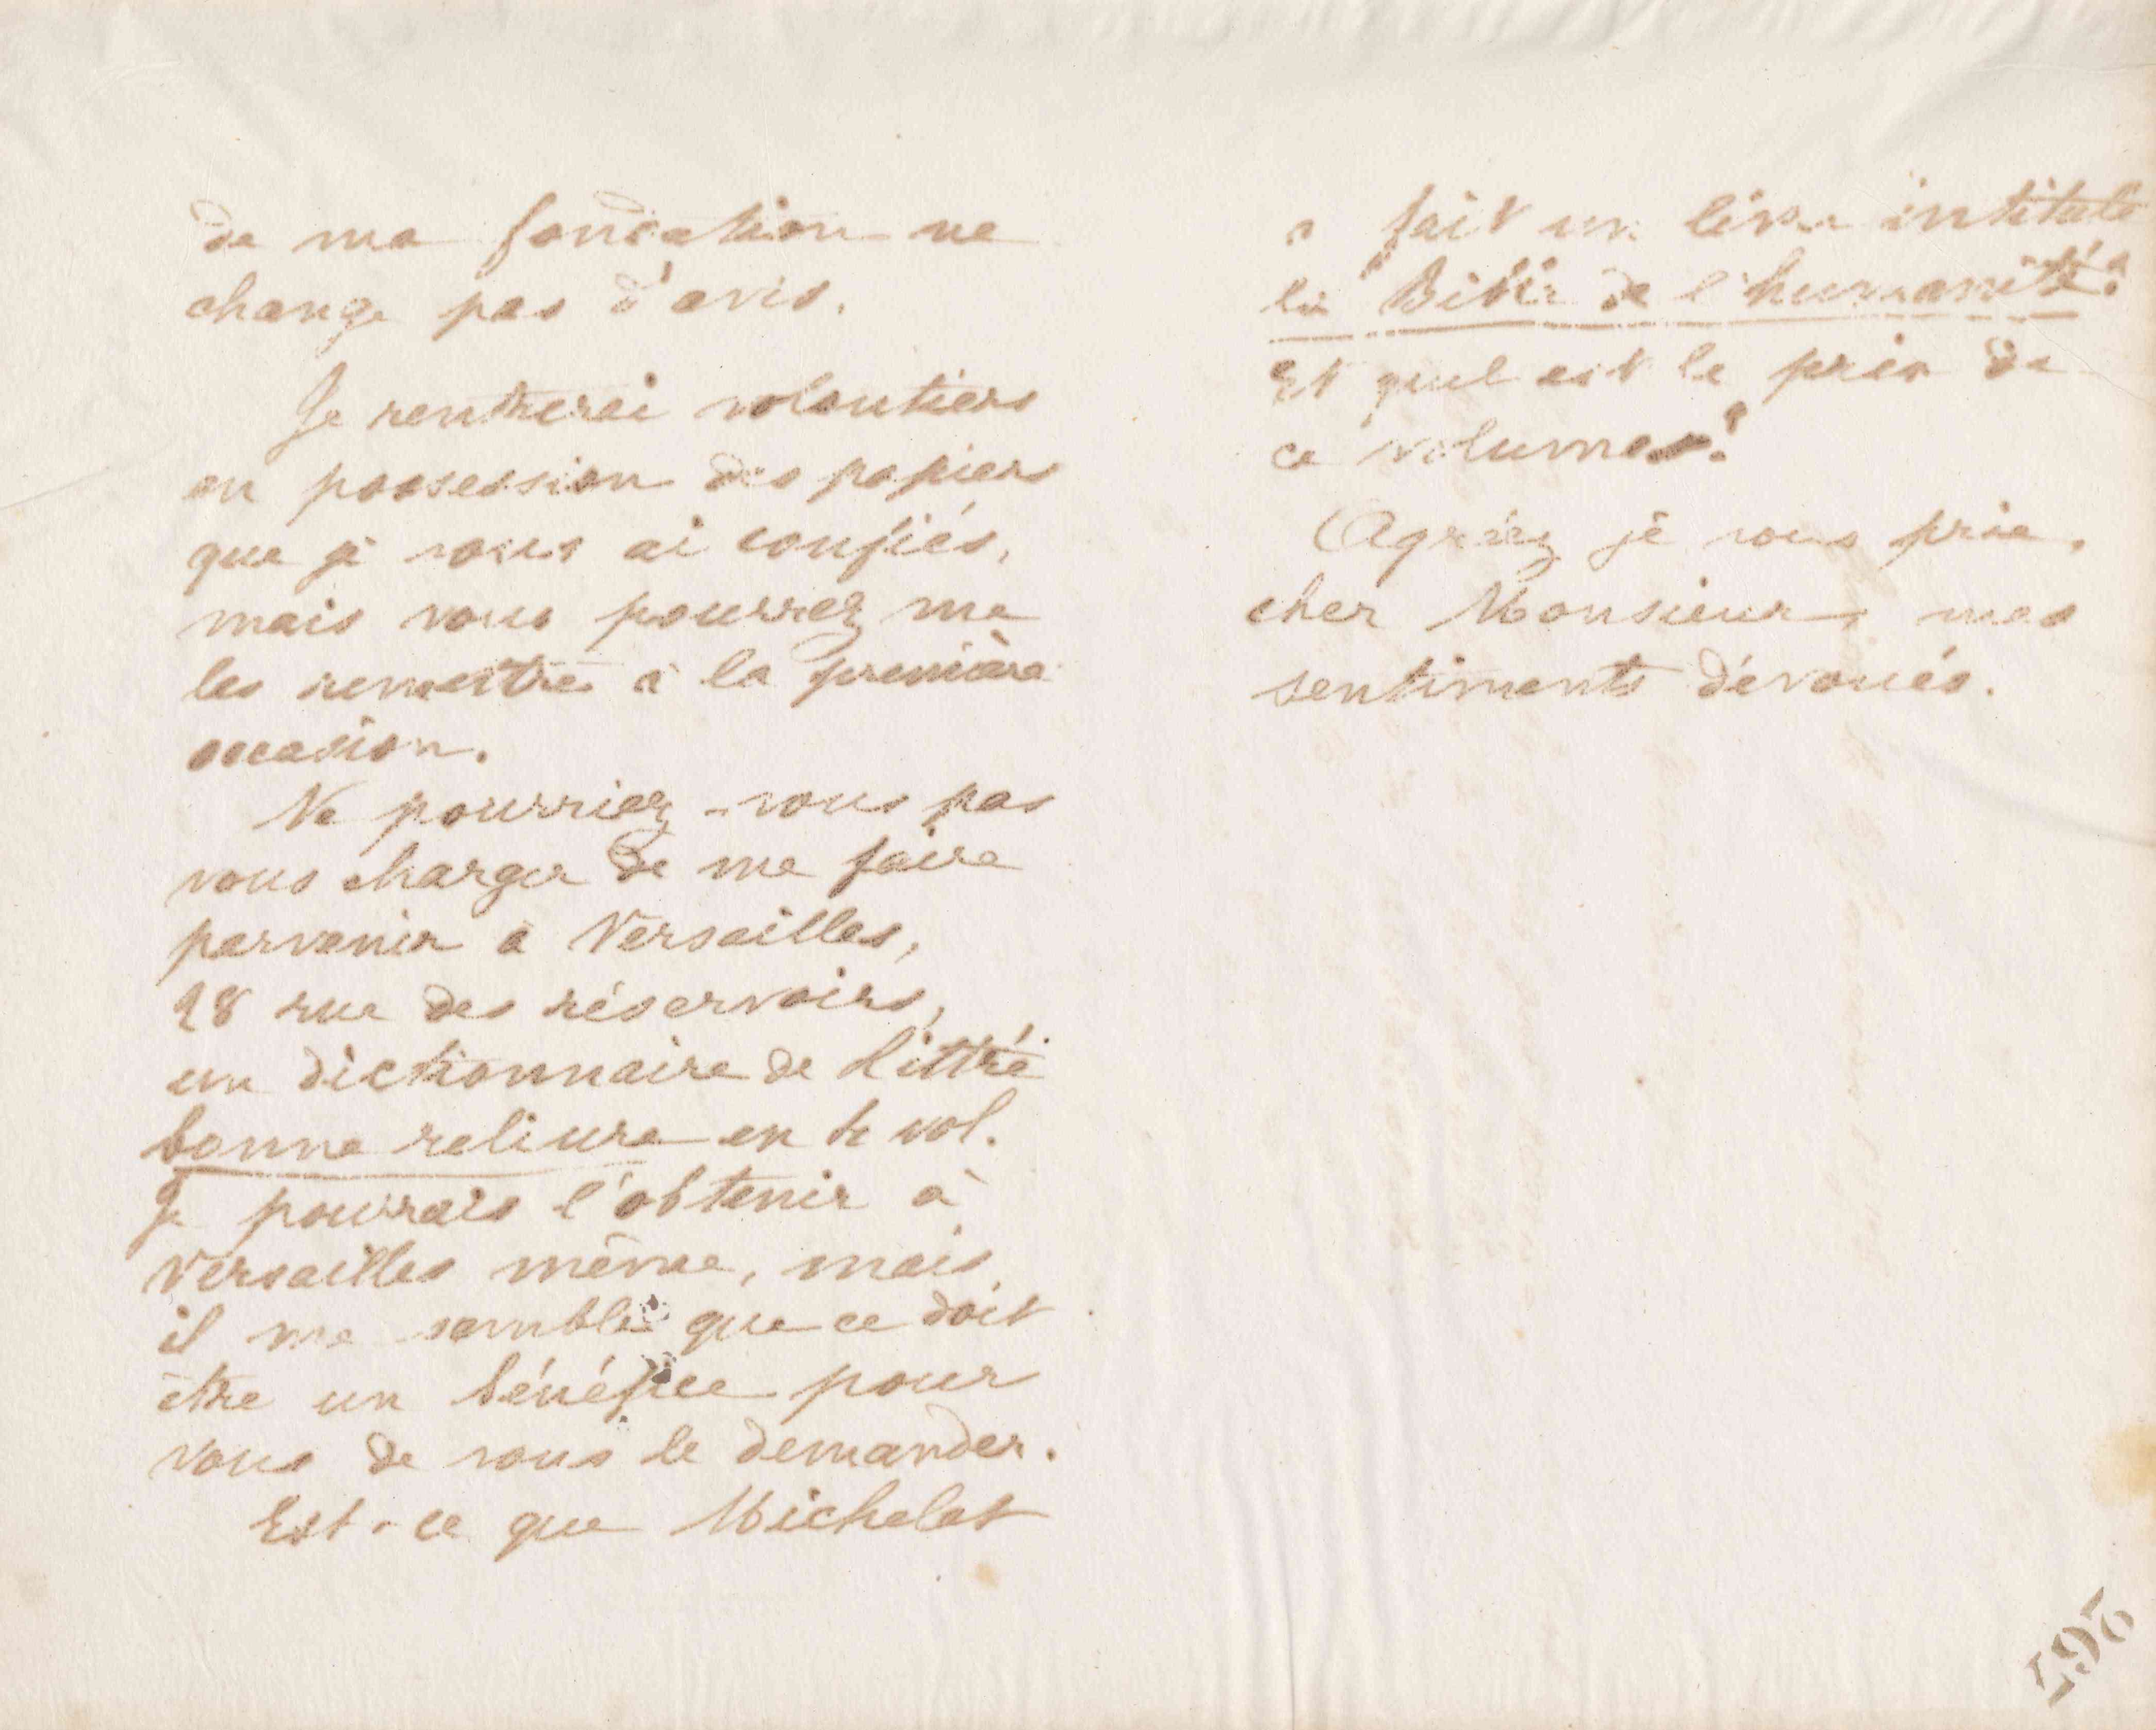 de ma fondation ne
change pas d'avis.
Je rentrerai volontiers
en possession des papiers
que je vous ai confiés,
mais vous pourrez me
les remettre à la première
occasion.
Ne pourriez-vous pas
vous charger de me faire
parvenir à Versailles,
28 rue des réservoirs,
un dictionnaire de Littré
bonne reliure en 4 vol.
Je pourrais l'obtenir à
Versailles même, mais
il me semble que ce doit
être un bénéfice pour
vous de vous le demander.
Est-ce que Michelet
a fait un livre intitulé
la Bible de l'humanité?
Et quel est le prix de
ce volume?
Agréez je vous prie,
cher Monsieur, mes
sentiments dévoués.
267